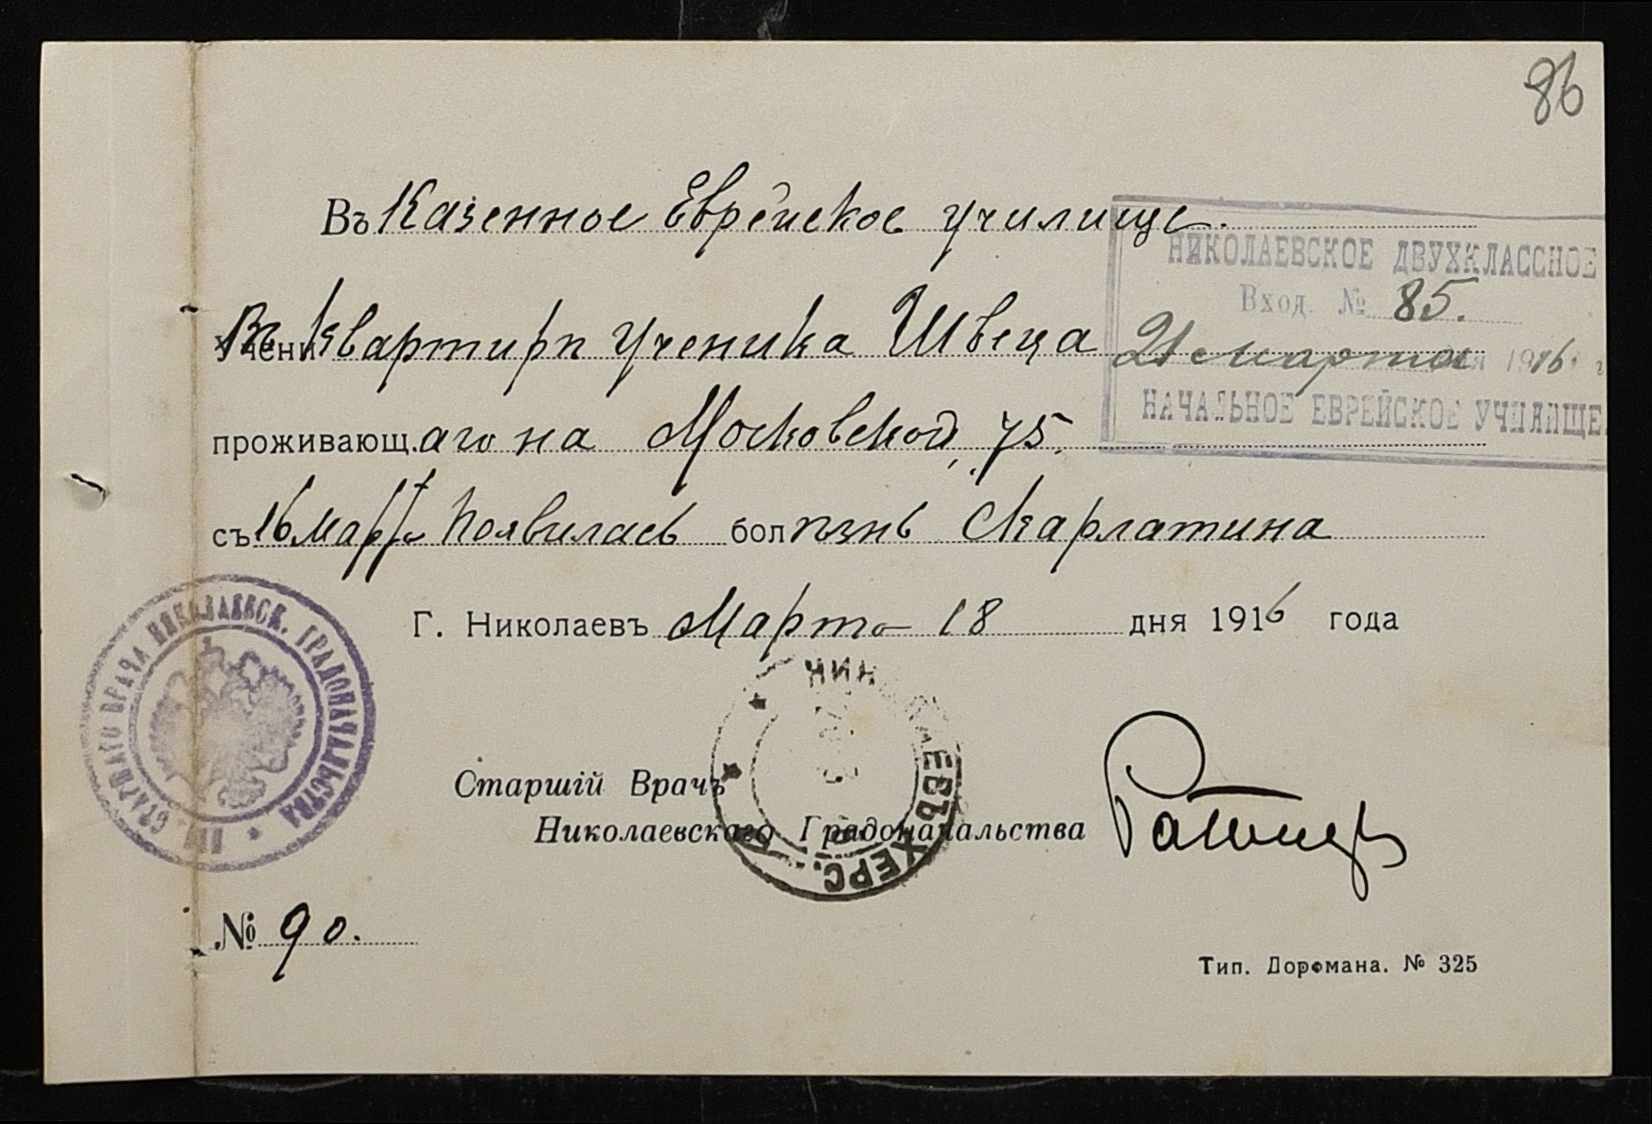 86
Въ Казенное Еврейское училище.
НИКОЛАЕВСКОЕ ДВУХКЛАССНОЕ
Вход. № 85.
Въ квартирѣ ученика Швеца
21 марта дня 1916 г
НАЧАЛЬНОЕ ЕВРЕЙСКОЕ УЧИЛИЩЕ.
проживающ.аго на Московской, 75.
съ 16 марта появилась болѣзнь скарлатина
Г. Николаевъ Марта 18 дня 1916 года
СТАРШАГО ВРАЧА НИКОЛАЕВСК. ГРАДОНАЧАЛЬСТВА
НИКОЛАЕВЪ ХЕРС.
Старшій Врачъ
Николаевскаго Градоначальства
№ 90.
Тип. Дорфмана. № 325